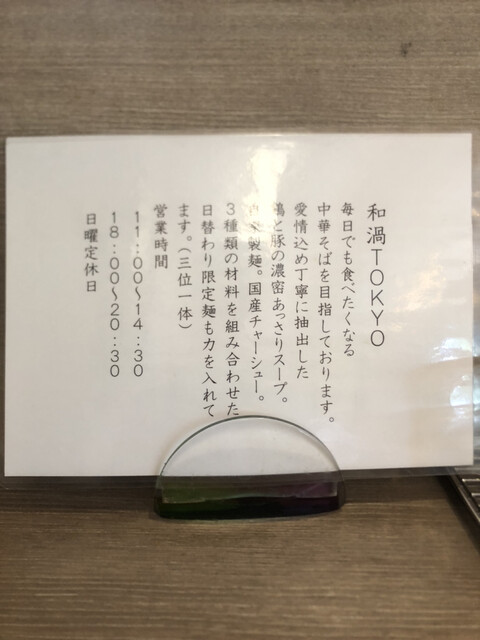 和渦TOKYO
毎日でも食べたくなる
中華そばを目指しております。
愛情込め丁寧に抽出した
鶏と豚の濃密あっさりスープ。
自家製麺。国産チャーシュー。
3種類の材料を組み合わせた
日替わり限定麺も力を入れて
ます。(三位一体)
営業時間
11:00〜14:30
18:00〜20:30
日曜定休日